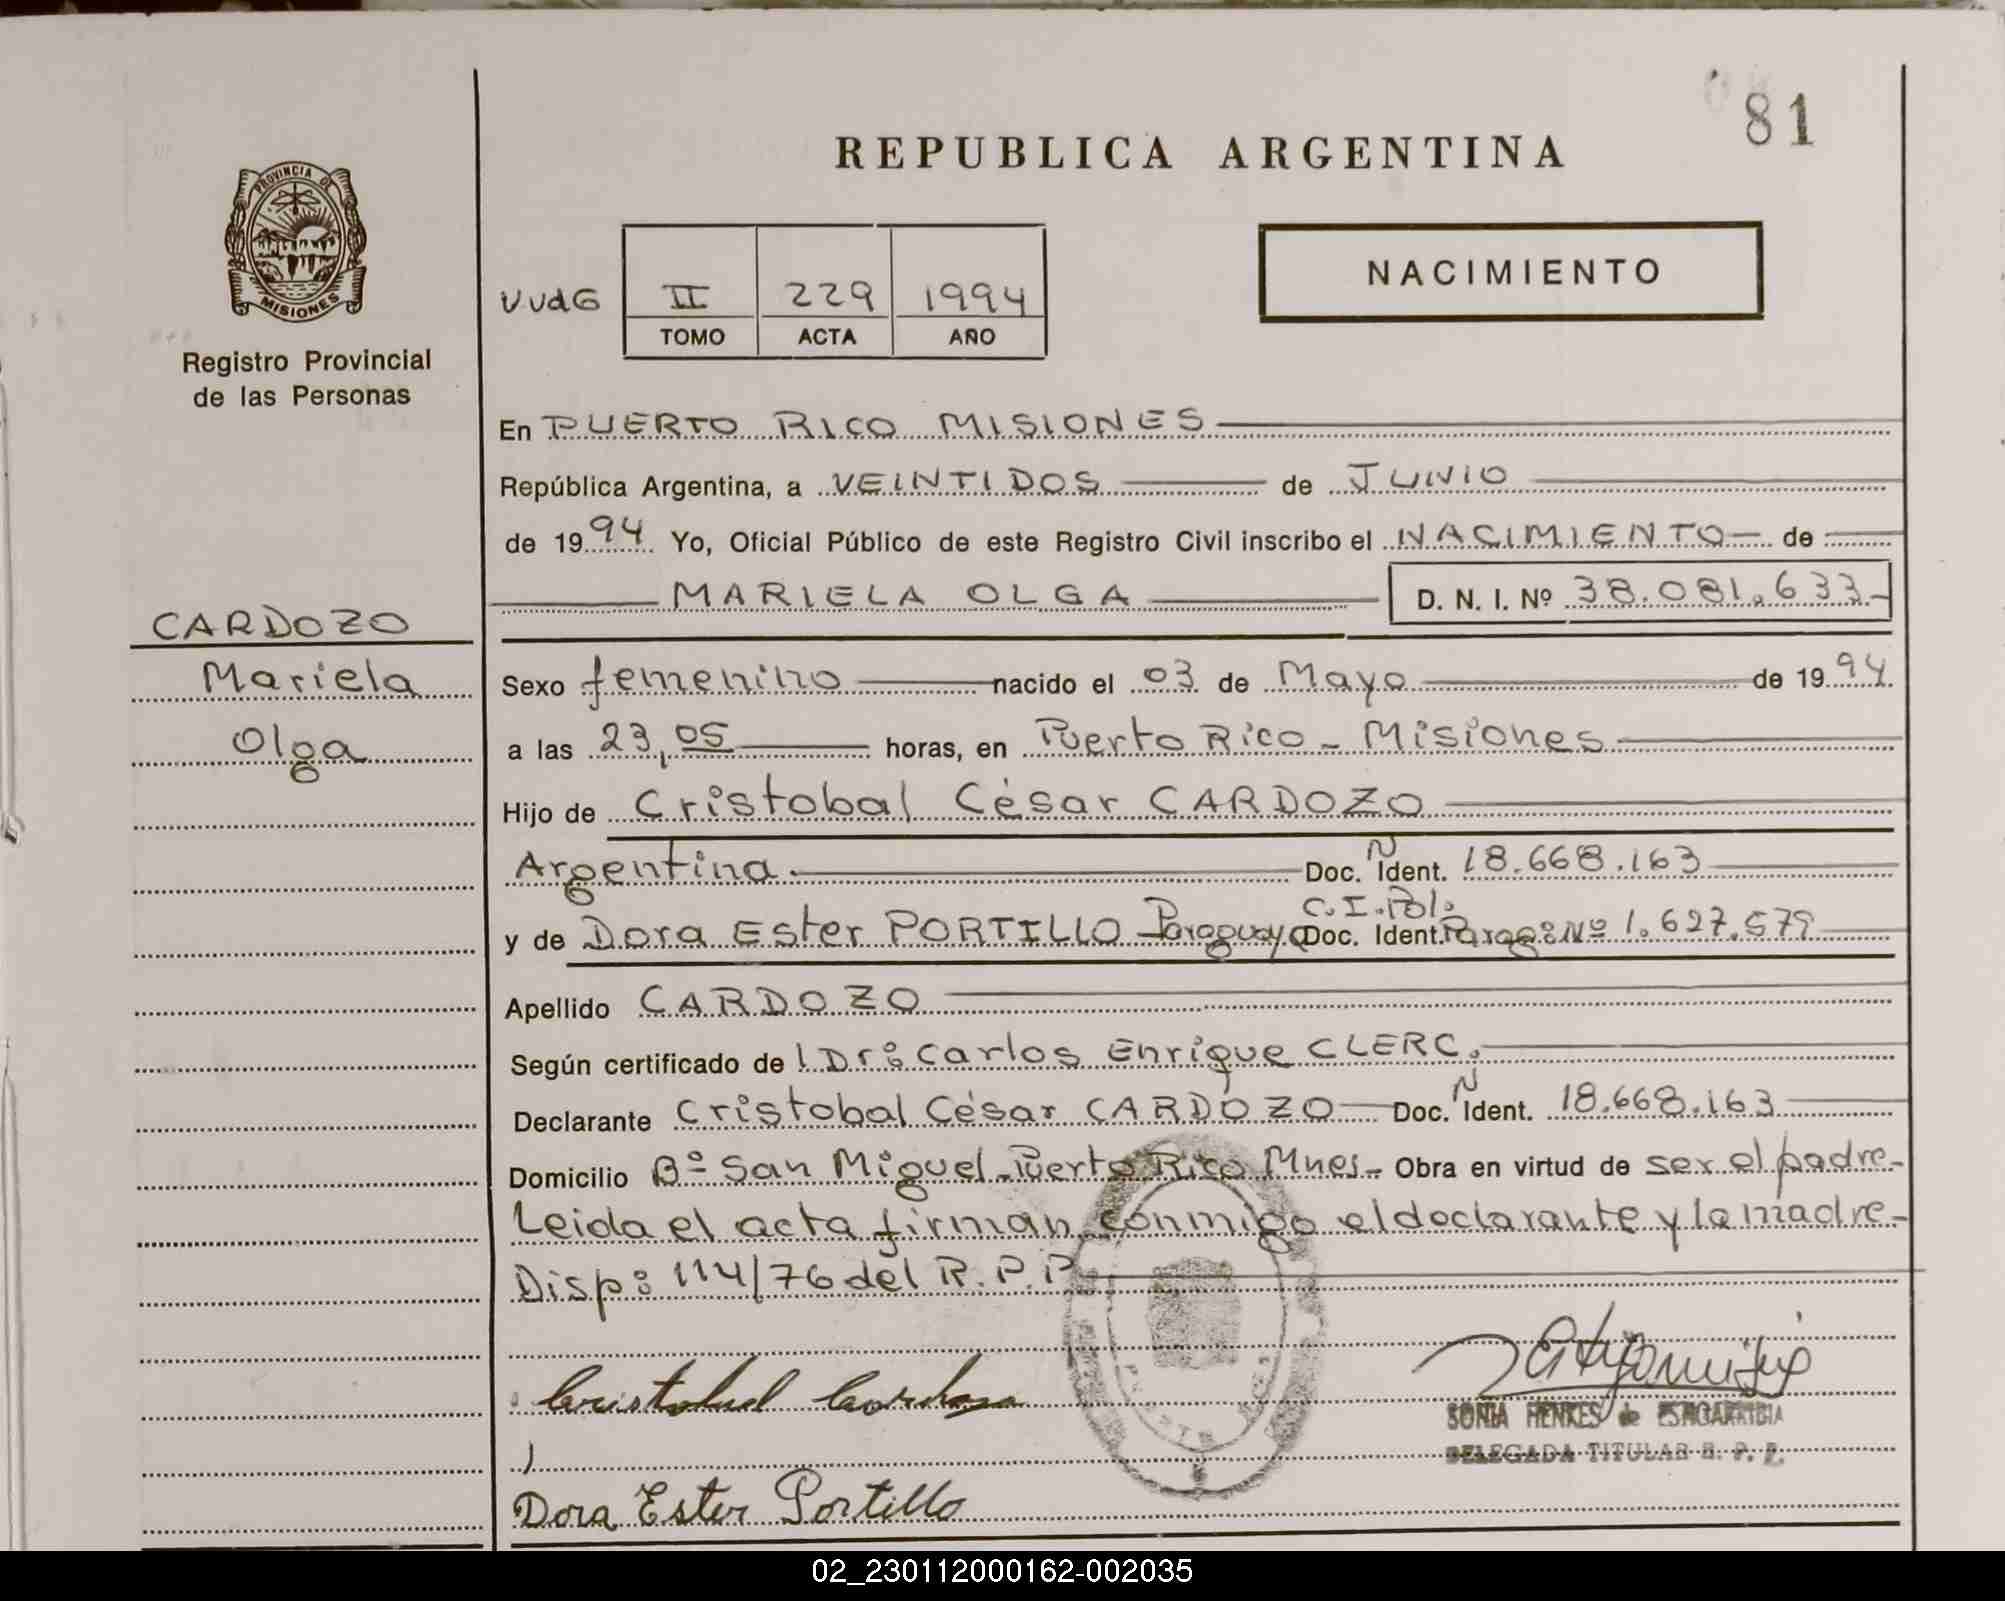 81
REPUBLICA ARGENTINA
PROVINCIA DE
MISIONES
Registro Provincial
de las Personas
VVdG II 229 1994
TOMO ACTA AÑO
NACIMIENTO
En PUERTO RICO MISIONES
República Argentina, a VEINTIDOS de JUNIO
de 1994 Yo, Oficial Público de este Registro Civil inscribo el NACIMIENTO de
MARIELA OLGA D. N. I. Nº 38.081.633-
CARDOZO
Mariela
Olga
Sexo femenino nacido el 03 de Mayo de 1994
a las 23,05 horas, en Puerto Rico - Misiones
Hijo de Cristobal César CARDOZO
Argentina. Doc. N Ident. 18.668.163
y de Dora Ester PORTILLO Paraguaya Doc. Ident. C.I.Pol. Parag: Nº 1.627.579
Apellido CARDOZO
Según certificado de l Dr: Carlos Enrique CLERC.
Declarante Cristobal César CARDOZO Doc. N Ident. 18.668.163
Domicilio Bº San Miguel - Puerto Rico Mnes - Obra en virtud de ser el padre-
Leida el acta firman conmigo el declarante y la madre-
Disp: 114/76 del R.P.P.
Cristobal Cardozo
SONIA HENKES de
DELEGADA TITULAR R. P. P.
Dora Ester Portillo
02_230112000162-002035